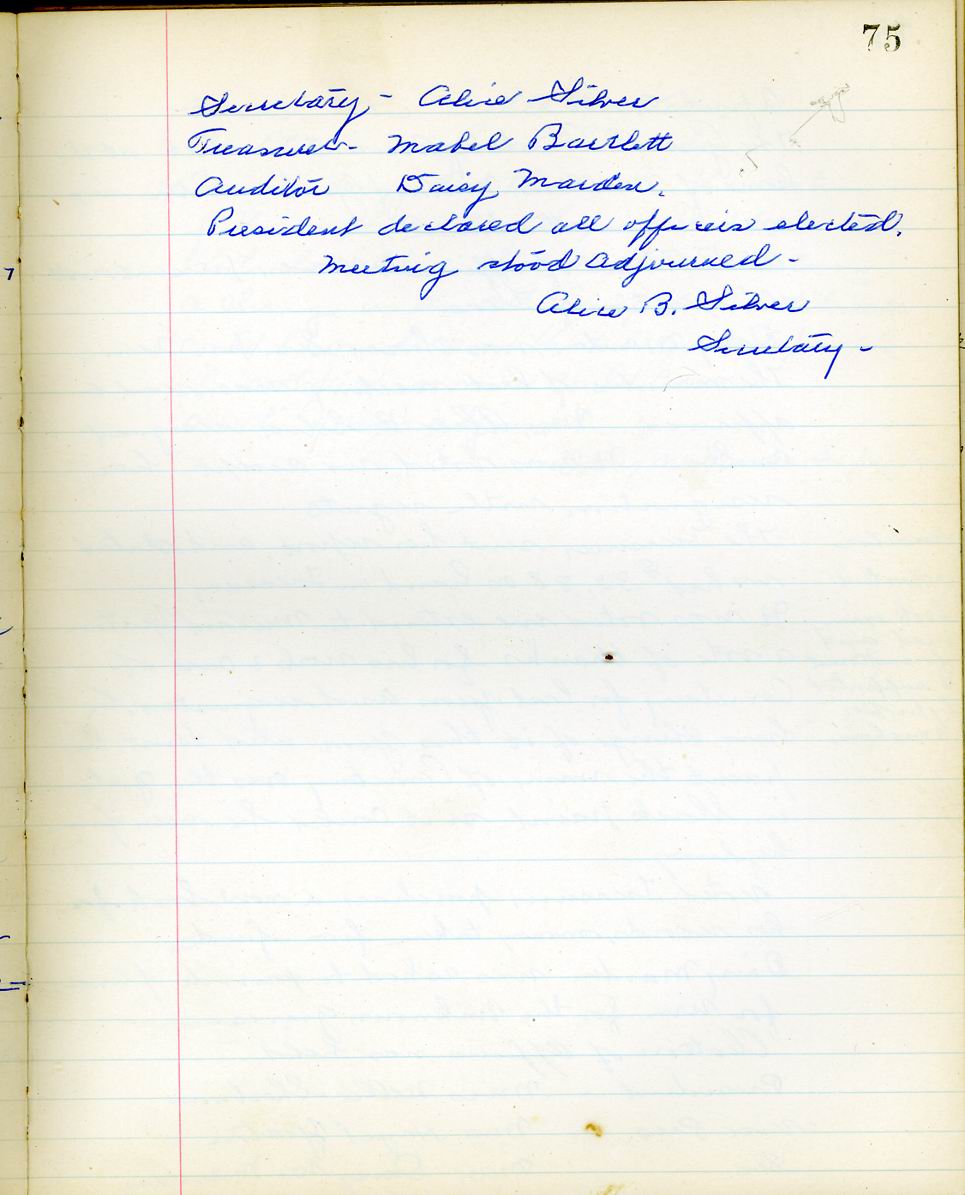 75
Secretary - Alice Silver
Treasurer - Mabel Bartlett
Auditor Daisy Marden.
President declared all officers elected.
Meeting stood adjourned -
Alice B. Silver
Secretary -